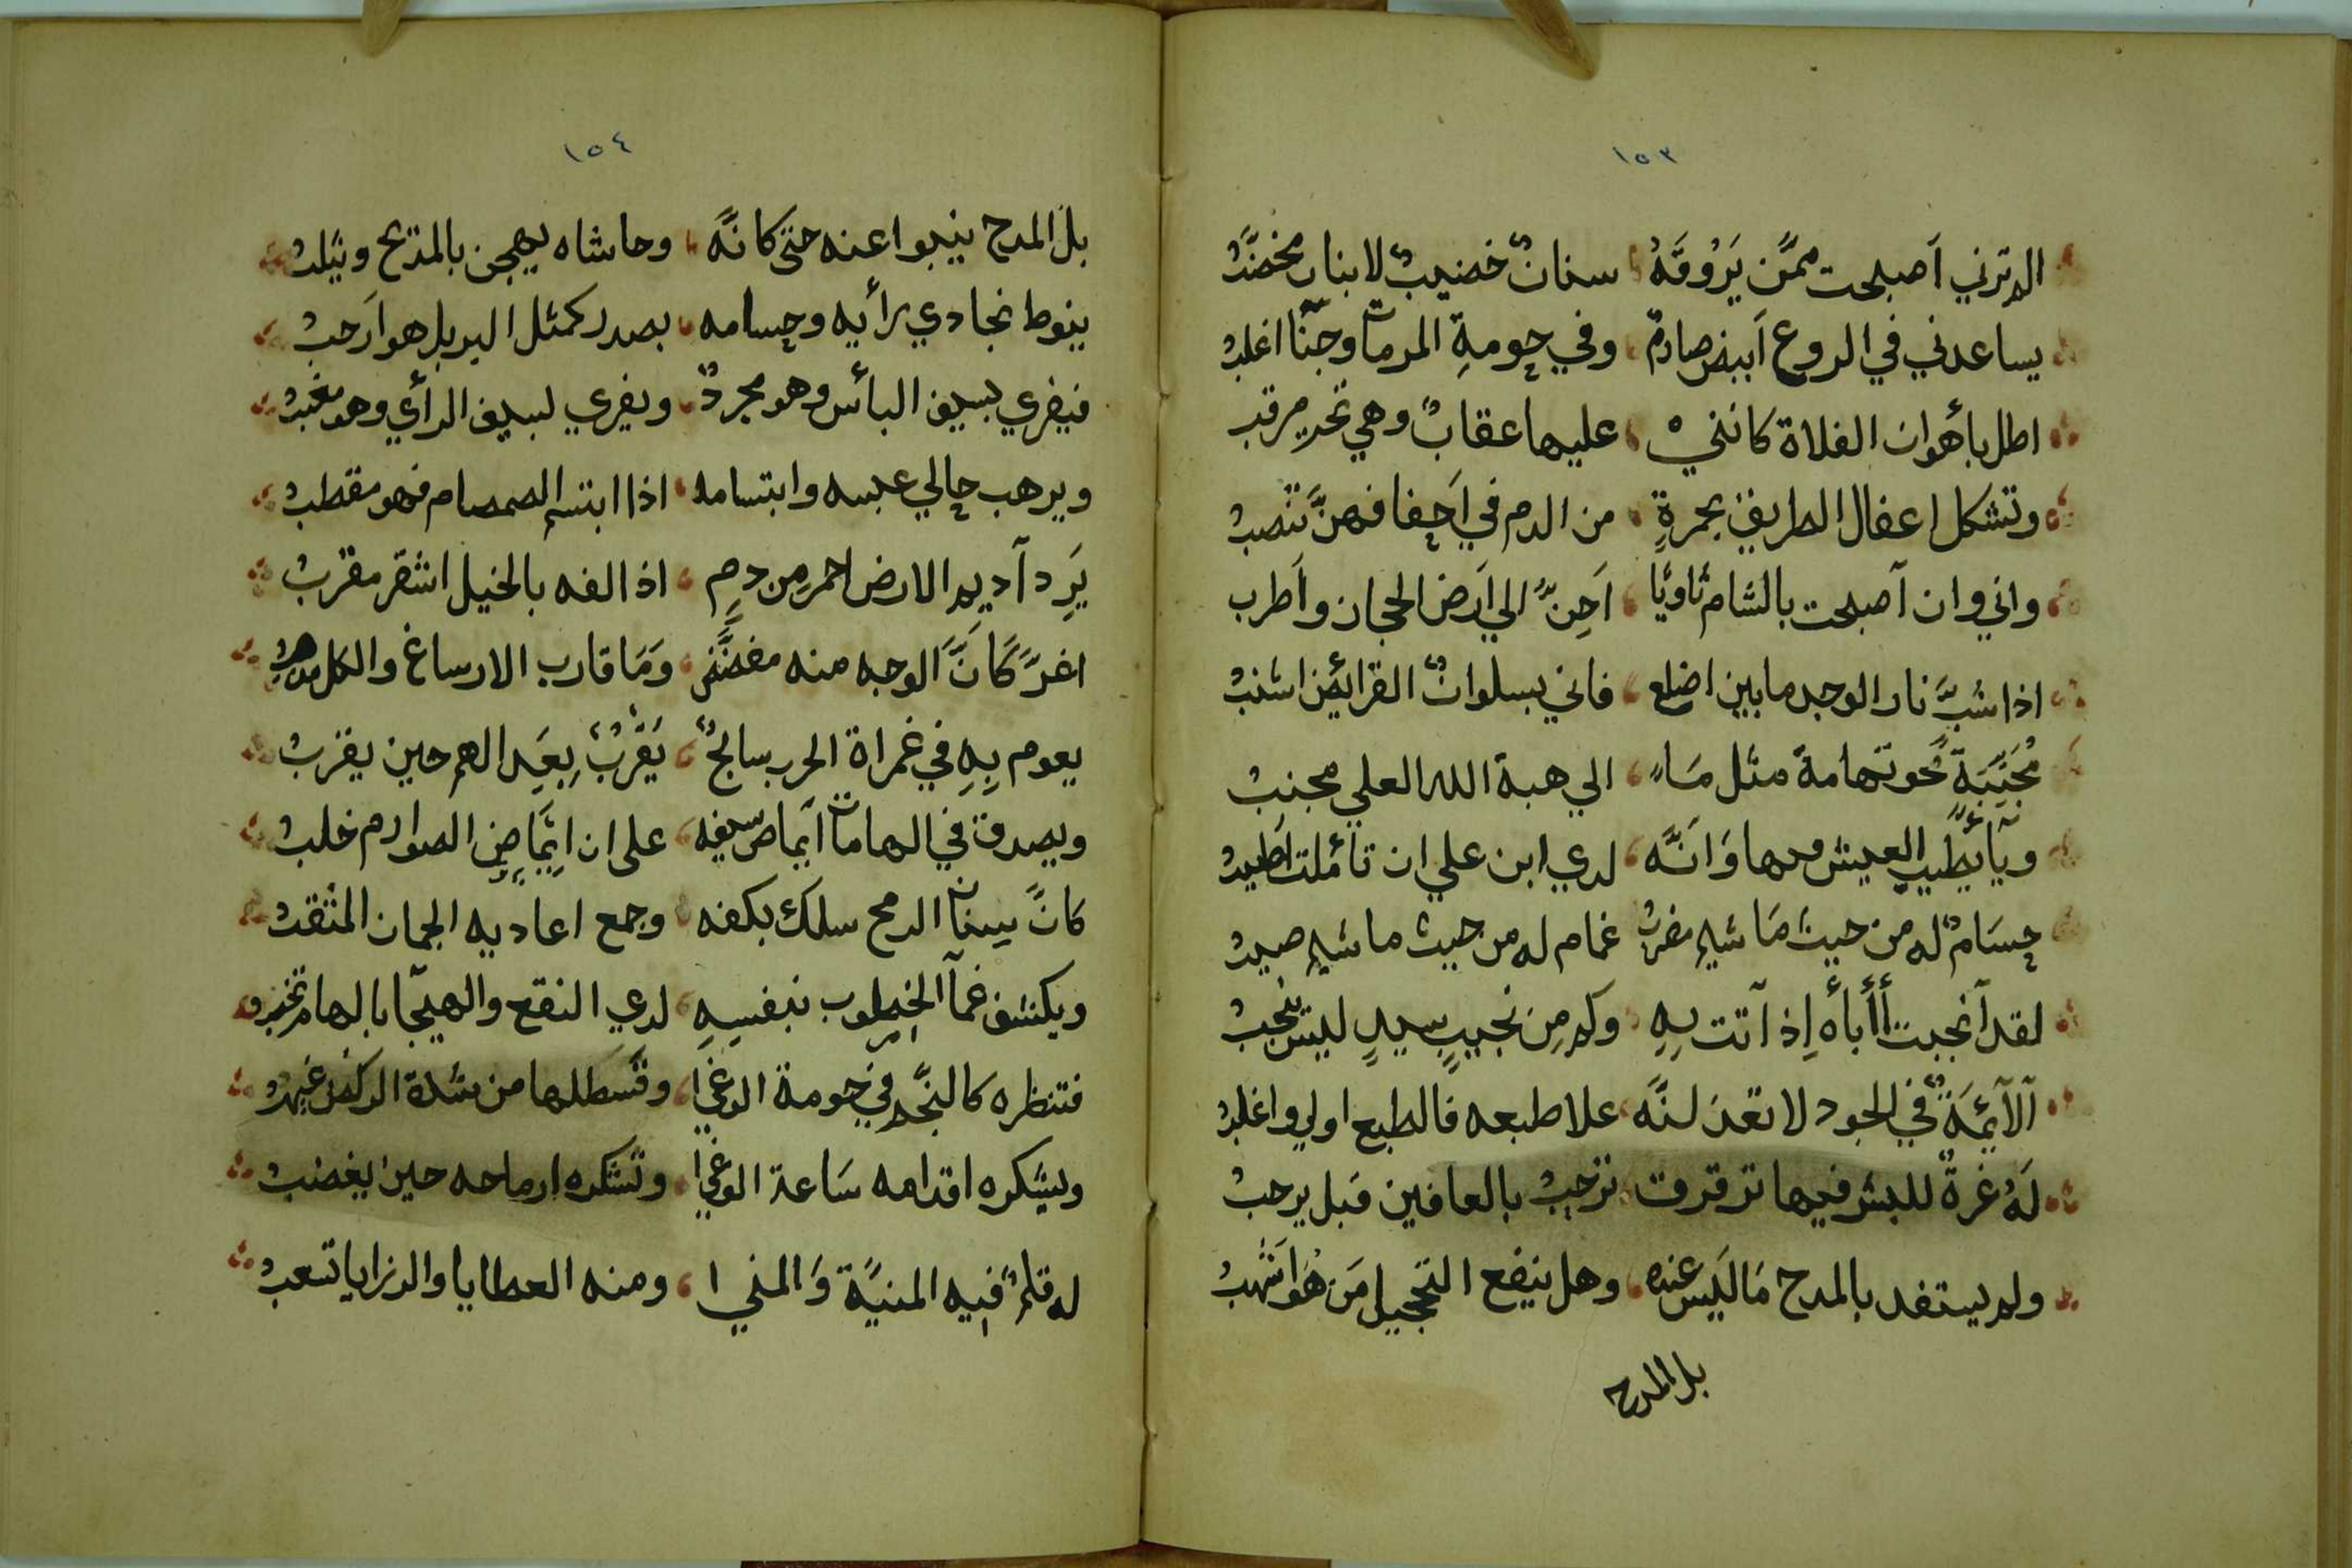 ١٥٣
الم ترني اَصبحت ممَّن يَرُوقَهُ سنانٌ خضيبٌ لا بنان مخضَّبُ
يساعدني في الروع اَبيض صارمٌ وفي حومةِ المرمات وجنّا اغلبُ
اطل بأهوان الفلاة كانني عليها عقابٌ وهي تحتي مرقب
وتشكل اعفال الطريق بحمرةٍ من الدم في اَحفافهنَّ تنصبُ
واني وان اَصبحت بالشام ثاويًا اَحِنُّ الي اَرض الحجاز واَطرب
اذا شبَّ نار الوجد ما بين اضلع فاني بسلوانٌ القرايض اشنبُ
مُجَنِّبَةٍ نحو تهامة مثل مَا الي هبة الله العلي مجنبُ
العيش وَاَنَّه لدي ابن علي ان تأملت اطيبُ
حسَامٌ له من حيث مَا شيم مضربٌ غمام له من حيث ما شيم صيبُ
لقد آنجبت أأباه إِذ آتت بِهِ وكم مِن نجيبٍ سيدٍ ليس ينجبُ
آلآيُمَهٌ في الجود لا تعذلنَّه علا طبعه فالطبع اولي واغلبُ
لَهُ غرةٌ للبشر فيها ترقرق ترحبُ بالعافين قبل يرحبُ
ولم يستفد بالمدح مَا لَيس عنده وهل ينفع التحجيل مَن هُوَ اَشهبُ
بل المدح
١٥٤
بل المدح ينبوا عنه حتى كانَّه وحاشاه يهجن بالمديح ويثلبُ
ينوط نجادي رأيه وحسامه بصدر كمثل البر بل هو اَرحبُ
فيفري بسيف البأس وهو مجردٌ ويفري لسيف الرأي وهو مغيبُ
ويرهب حالي عبسه وابتسامه اذا ابتسم الصمصام فهو مقطبُ
يَرِد آديم الارض احمر مِن دمٍ اذا لفه بالخيل اشقر مقربُ
اغرَّ كَانَّ الوجه منه مفضَّض وَمَا قارب الارساغ والكل مذهبُ
يعوم بِهِ في غمراة الحرب سابحٌ يَقْرُبُ بعَيد الهم حين يقربُ
ويصدق في الهامات اَيماض سيفه على ان اِيمَاضِ الصوارم خلبُ
كانً سِنان الرمح سلك بكفه وجمع اعاديه الجمان المثقبُ
ويكشف غمآ الخطوب بنفسِهِ لدي النقع والهيجا بالهام تخربُ
فتنظره كالنَّجم في حومة الوغي وقسطلها من شدة الركض غيهبُ
ويشكره اقدامه سَاعة الوغي وتشكره ارماحه حين يغضبُ
له قلمٌ فيه المنيَّة وَالمني ومنه العطايا والرزايا تسعبُ